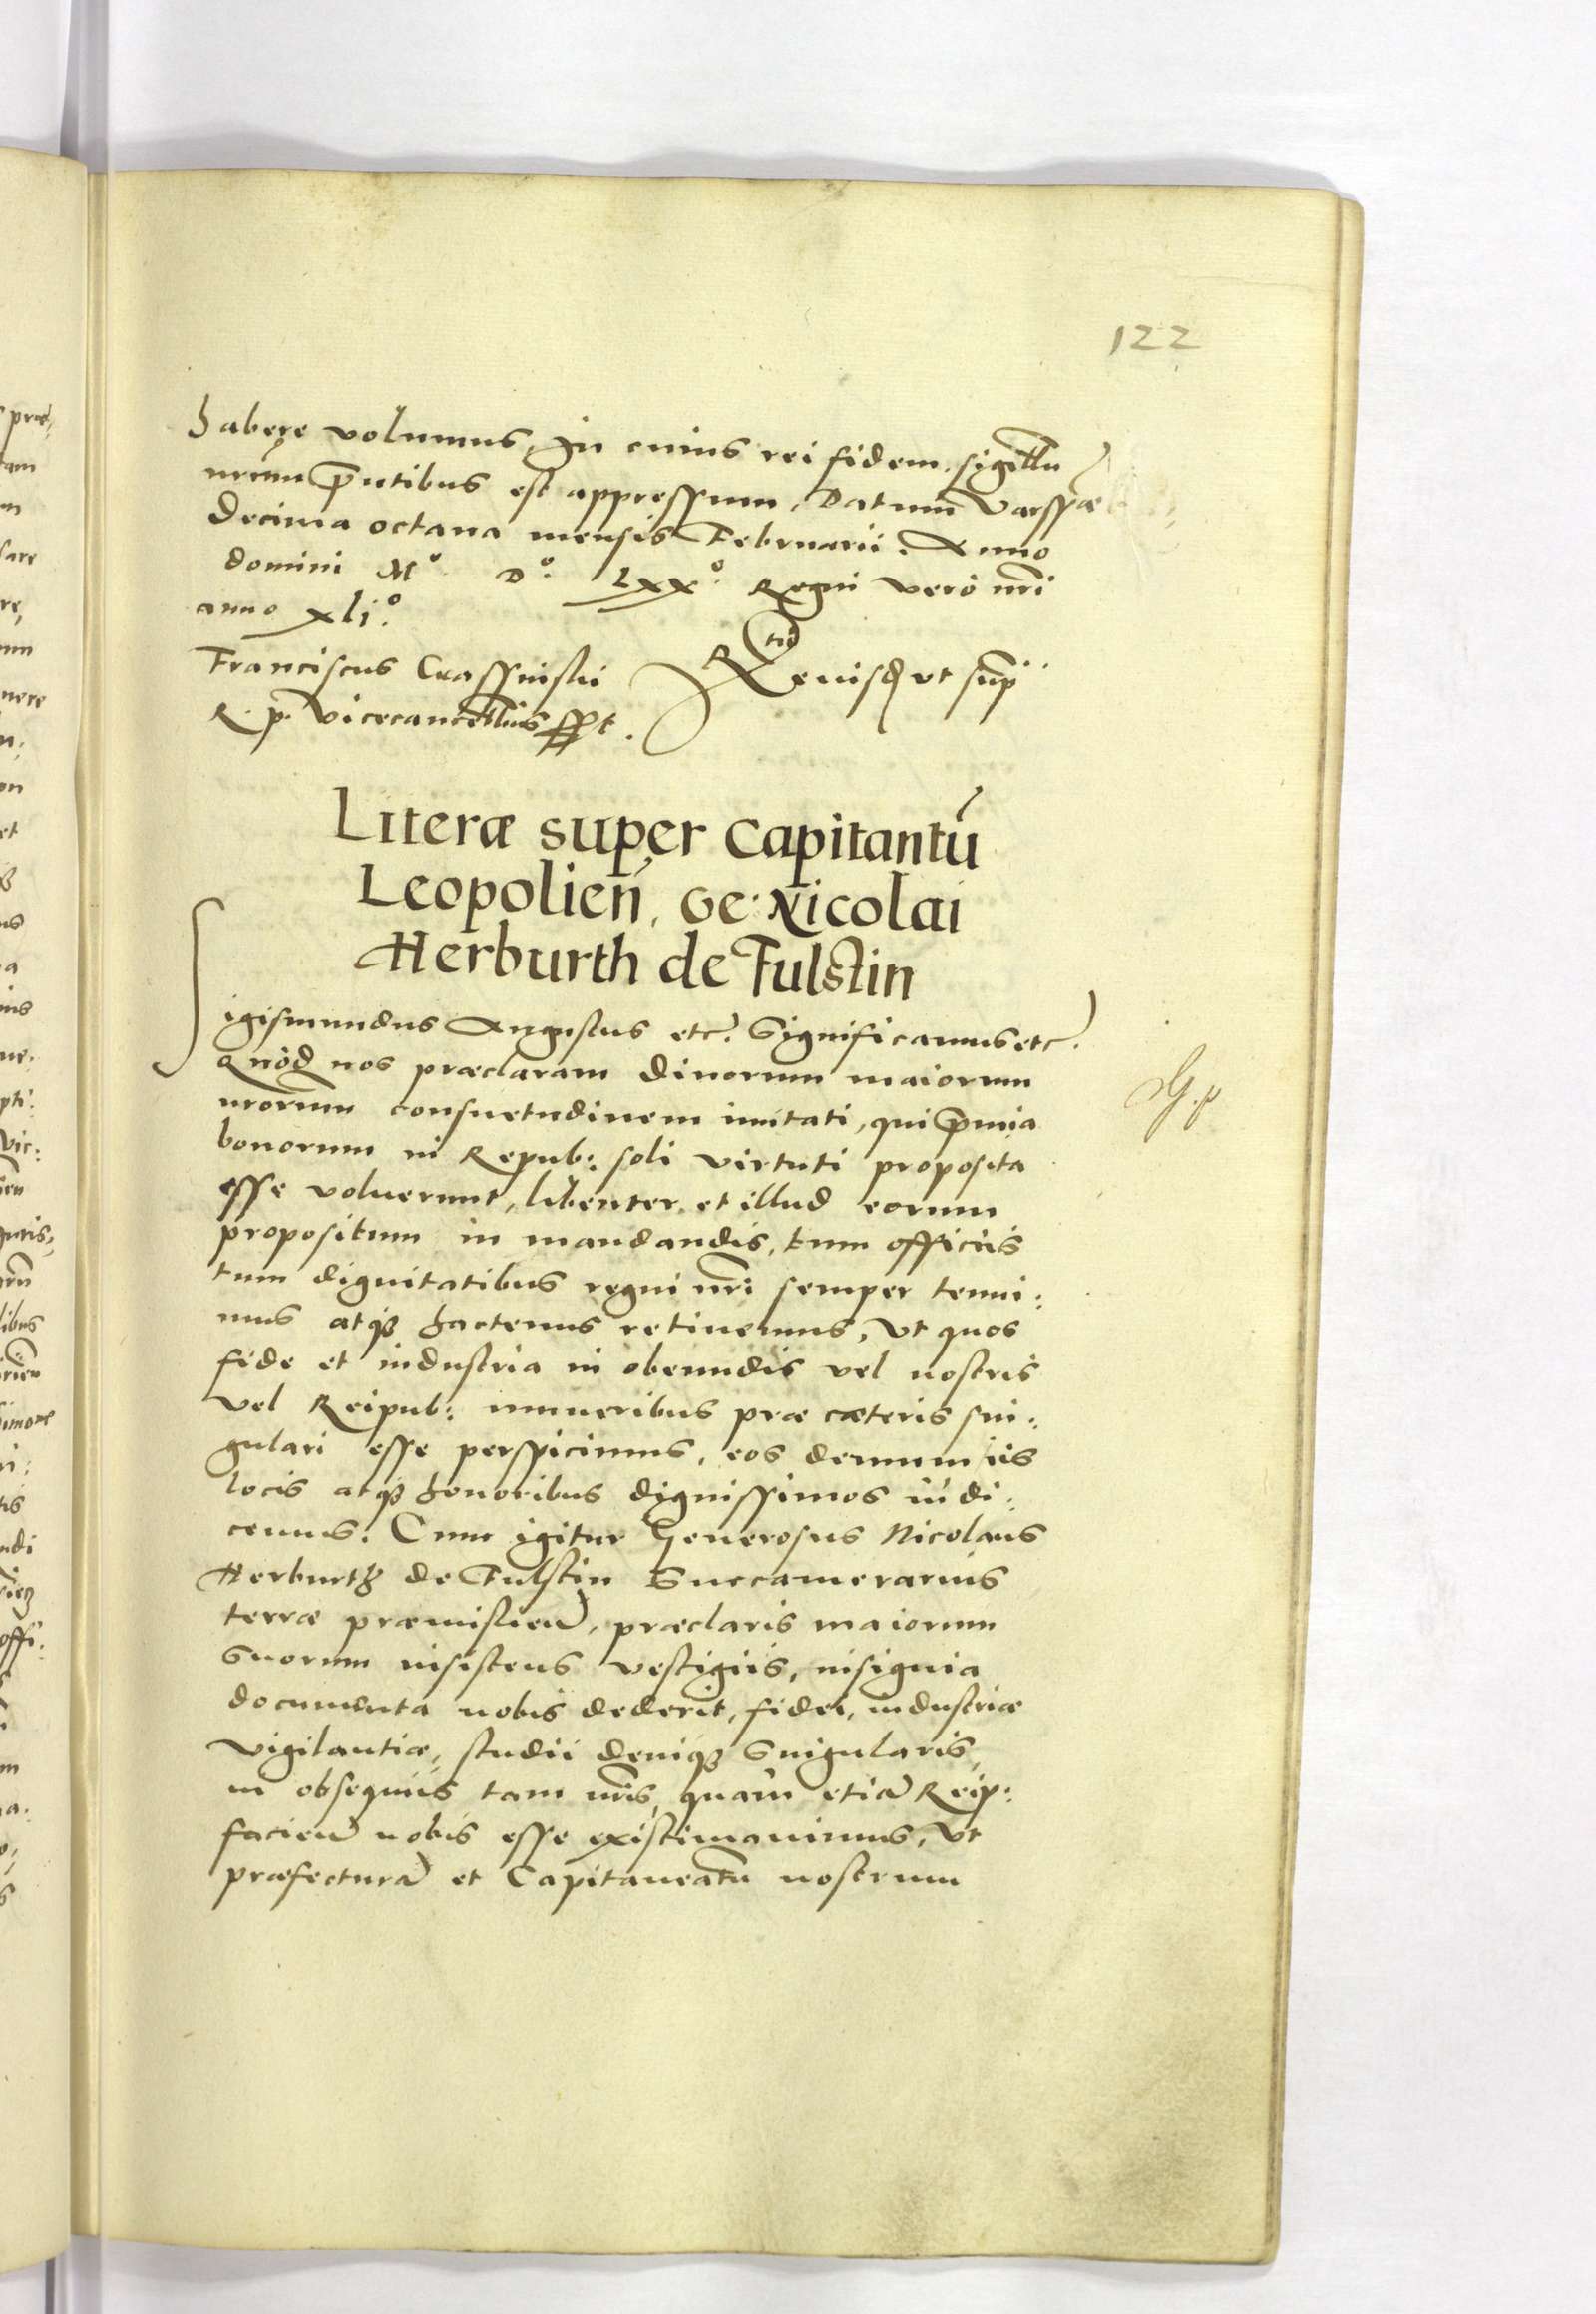 122
habere volumus, In cuius rei fidem sigillu
nrum pntibus est appressum, Datum Varssae
decima octaua mensis Februarii. Anno
domini Mº Dº. Lxxº. Regni vero nri
anno xliº.
Franciscus Crassinski Rtio eiusq vt supr
R. p. Vicecancellius sspt.
Literæ super Capitantu
Leopolien, Ge: Nicolai
Herburth de Fulstin
Sigismundus Augustus etc. Significamus etc.
Quod nos præclaram diuorum maiorum
nrorum consuetudinem imitati, qui pmia
bonorum in Repub: soli virtuti proposita
esse voluerunt, libenter et illud eorum
propositum in mandandis, tum officiis
tum dignitatibus regni nri semper tenui:
mus atq hactenus retinemus, Vt quos
fide et industria in obeundis vel nostris
vel Reipub: muneribus præ cæteris sin:
gulari esse perspicimus, eos demum iis
locis atq honoribus dignissimos iudi:
cemus. Cum igitur Generosus Nicolaus
Herburth de Fulstin Succamerarius
terræ præmislien, præclaris maiorum
Suorum insistens vestigiis, insignia
documenta nobis dederit, fidei, industriæ
vigilantiæ, studii deniq Singularis,
in obsequiis tam nris, quam etia Reip:
facien nobis esse existimauimus, Vt
præfectura et Capitaneatu nostrum